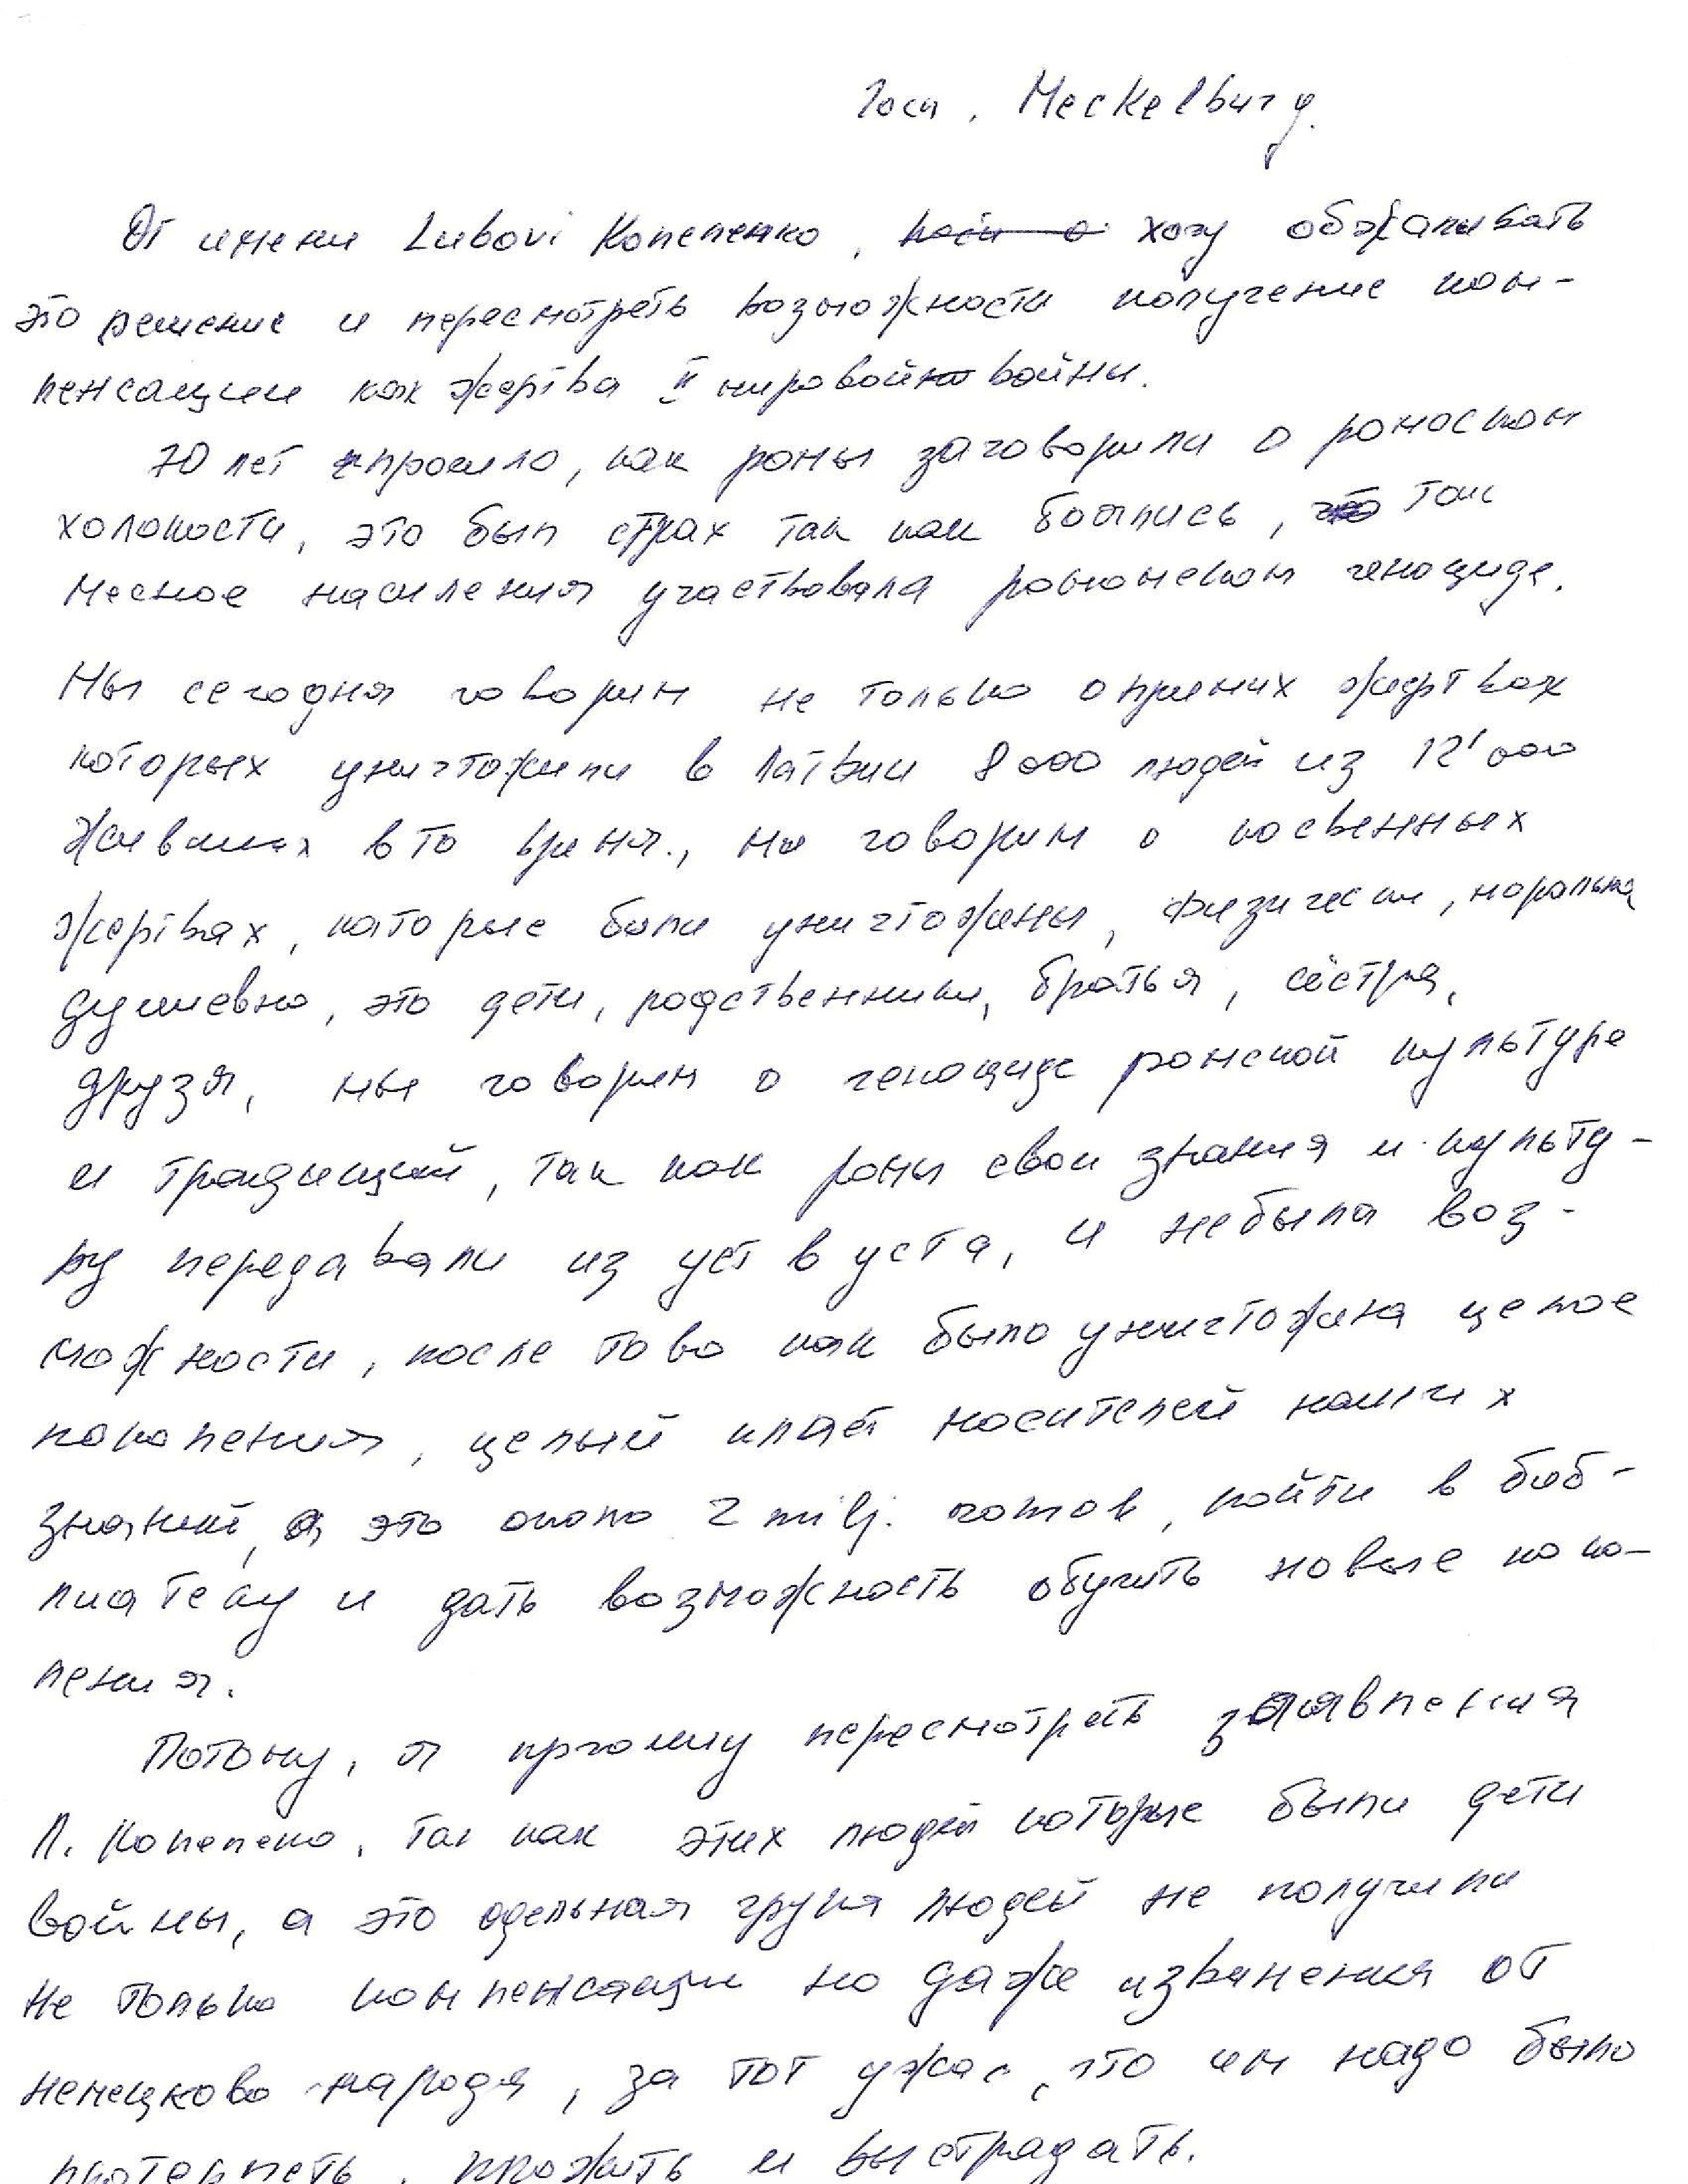 Госп. Meckelburg.
От имени Lubovi Копепенко, хочу обжаливать
это решение и пересмотреть возможности получение ком-
пенсацыи как жертва II мировой войны.
70 лет прошло, как ромы заговорили о ромоском
холокости, это был страх так как боялись, так
месное насиления участвовала ромском геноциде.
Мы сегодня говорим не только о прямих жертвах
которых уничтожили в Латвии 8000 людей из 12'000
жившых в то время., мы говорим о косвенных
жертвах, каторые были уничтожены, физически, моральна,
душевно, это дети, родственники, братья, сёстра,
друзя, мы говорим о геноциде ромской культуре
и традицый, так как ромы свои знания и культу-
ру передавали из уст в уста, и небыла воз-
можности, после тово как было уничтожена целое
поколения, целый пласт носителей наших
знаний, а это около 2 milj. ромов, пойти в биб-
лиатеку и дать возможность обучить новые поко-
ления.
Потому, я прошу пересмотреть заявления
Л. Копепено, так как этих людей которые были дети
войны, а это одельная група людей не получили
не только компенсацыи но даже извинения от
немецково народа, за тот ужас, что им надо было
протерпеть, прожить и выстрадать.